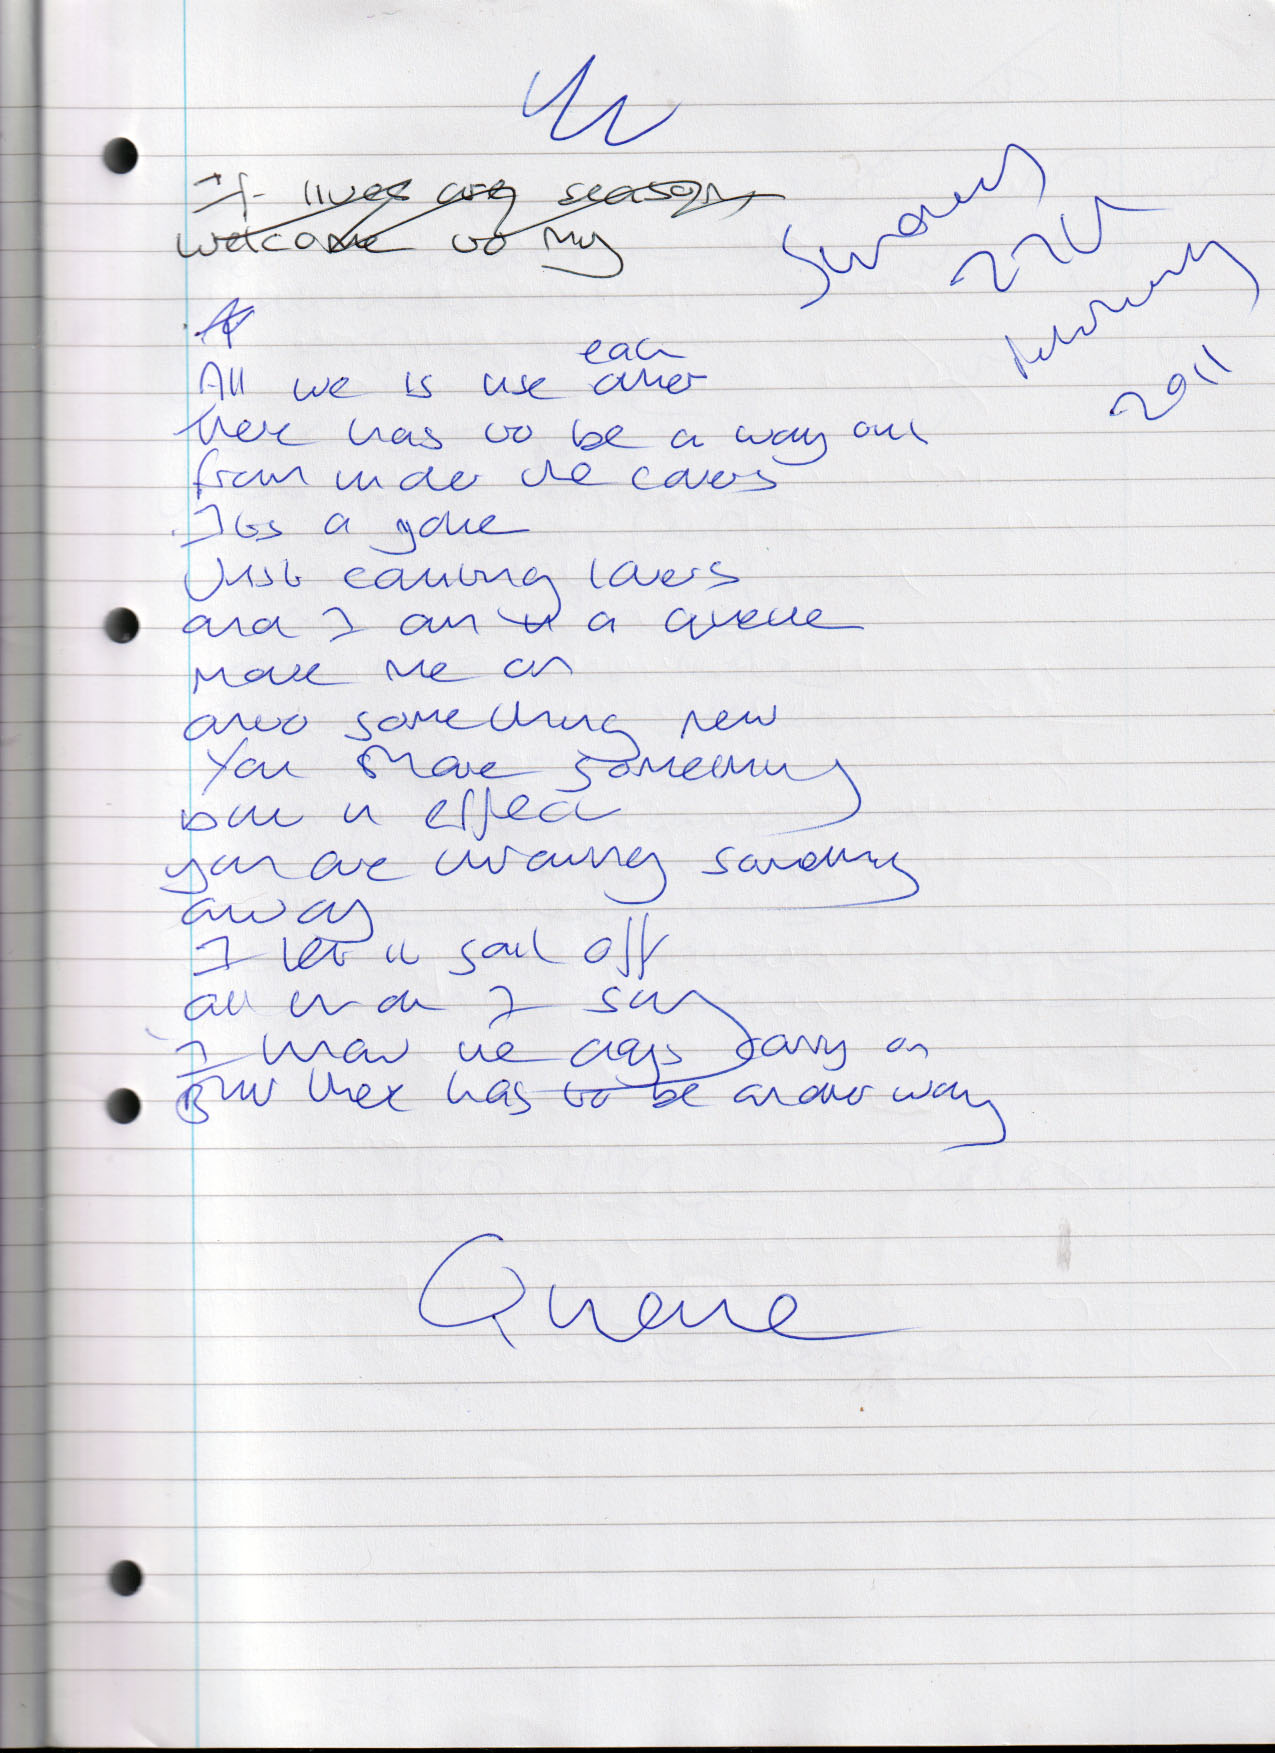 If lives are seasons
welcome to my
Sunday
27th
February
2011
All we is use each other
there has to be a way out
from under the covers
Its a game
Just counting lovers
and I am a queue
move me on
onto something new
You share something
but in effect
you are throwing something
away
I let it sail off
all in all I say
I know the days carry on
But there has to be another way
Queue